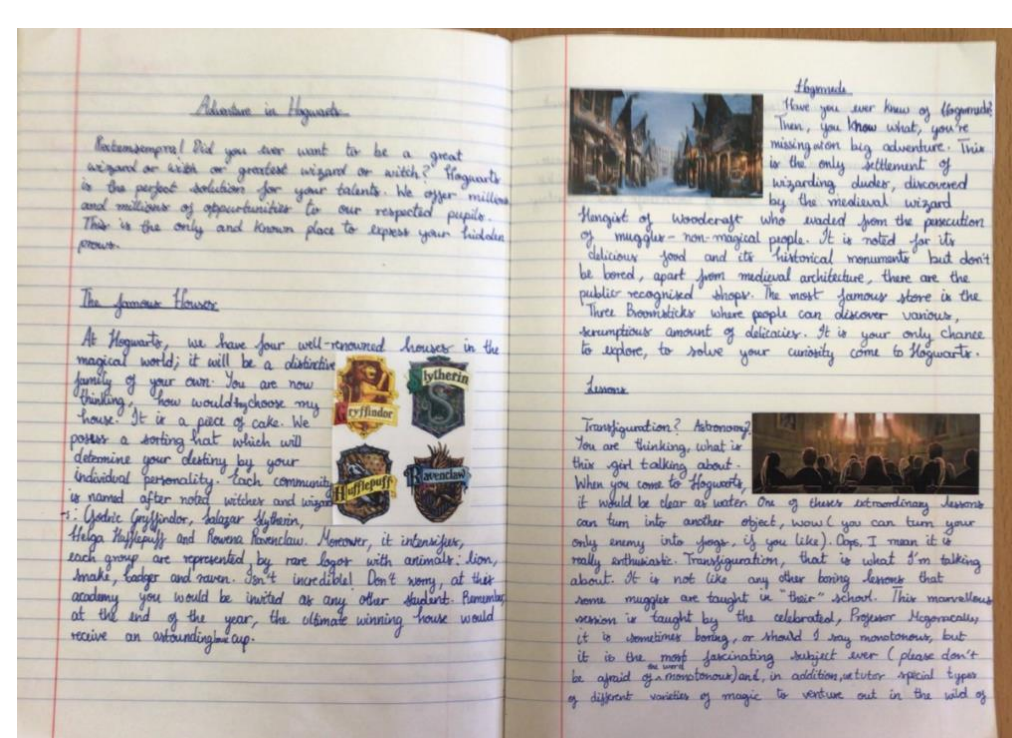 Adventure in Hogwarts
Rictemsempra! Did you ever want to be a great
wizard or witch or greatest wizard or witch? Hogwarts
is the perfect solution for your talents. We offer millions
and millions of oppourtunities to our respected pupils.
This is the only and known place to express your hidden
The famous Houses
At Hogwarts, we have four well-renowned houses in the
magical world; it will be a distinctive
family of your own. You are now
thinking, how would I choose my
house. It is a piece of cake. We
posess a sorting hat which will
determine your destiny by your
individual personality. Each community
is named after noted witches and wizard
-s: Godric Gryffindor, Salazar Slytherin,
Helga Hufflepuff and Rowena Ravenclaw. Moreover, it intensifies,
each group are represented by rare logos with animals: lion,
snake, badger and raven. Isn't incredible! Don't worry, at this
academy you would be invited as any other student. Remember,
at the end of the year, the ultimate winning house would
receive an astounding house cup.
Gryffindor
Slytherin
Hufflepuff
Ravenclaw
Hogsmede
Have you ever knew of Hogsmede?
Then, you know what, you're
missing out on big adventure. This
is the only settlement of
wizarding dudes, discovered
by the medieval wizard
Hengist of Woodcraft who evaded from the persecution
of muggles - non-magical people. It is noted for its
delicious food and its historical monuments but don't
be bored, apart from medieval architecture, there are the
public recognised shops. The most famous store is the
Three Broomsticks where people can discover various,
scrumptious amount of delicacies. It is your only chance
to explore, to solve your curiosity come to Hogwarts.
Lessons
Transfiguration? Astronomy?
You are thinking, what is
this girl talking about.
When you come to Hogwarts,
it would be clear as water. One of theses extraordinary lessons
can turn into another object, wow (you can turn your
only enemy into frogs, if you like). Oops, I mean it is
really enthusiastic. Transfiguration, that is what I'm talking
about. It is not like any other boring lessons that
some muggles are taught in "their" school. This marvellous
session is taught by the celebrated, Professor Mcgonically,
it is sometimes boring, or should I say monotonous, but
it is the most fascinating subject ever (please don't
be afraid of the word monotonous) and, in addition, we tutor special types
of different varieties of magic to venture out in the wild of